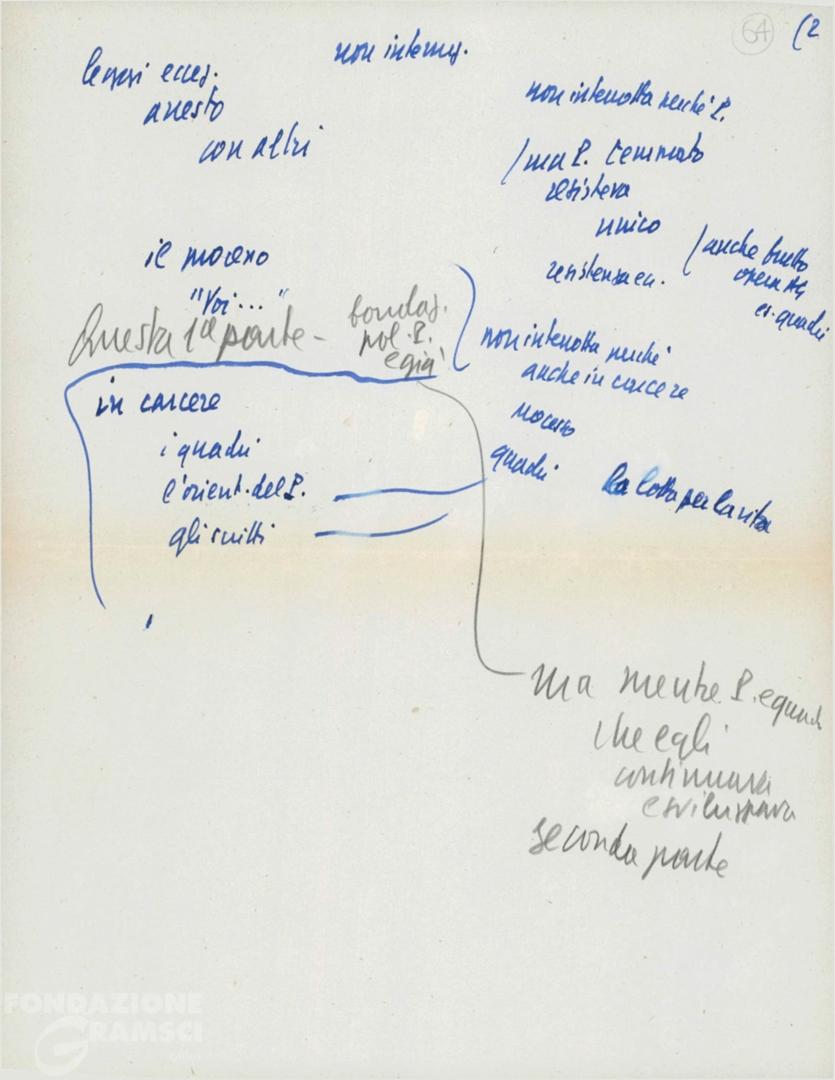 64
(2
non interruz.
leggi eccez.
arresto
con altri
non interrotta perché P.
ma P. temprato
resisteva
unico
resistenza ecc.
anche frutto
opera AG
es. quadri
il processo
"Voi..."
Questa 1ª parte -
fondaz.
pol. P.
e già
non interrotta perché
anche in carcere
processo
quadri
in carcere
i quadri
l'orient. del P.
gli scritti
la lotta per la vita
ma mentre P. e quadri
che egli
continuava
e sviluppava
seconda parte
FONDAZIONE
GRAMSCI